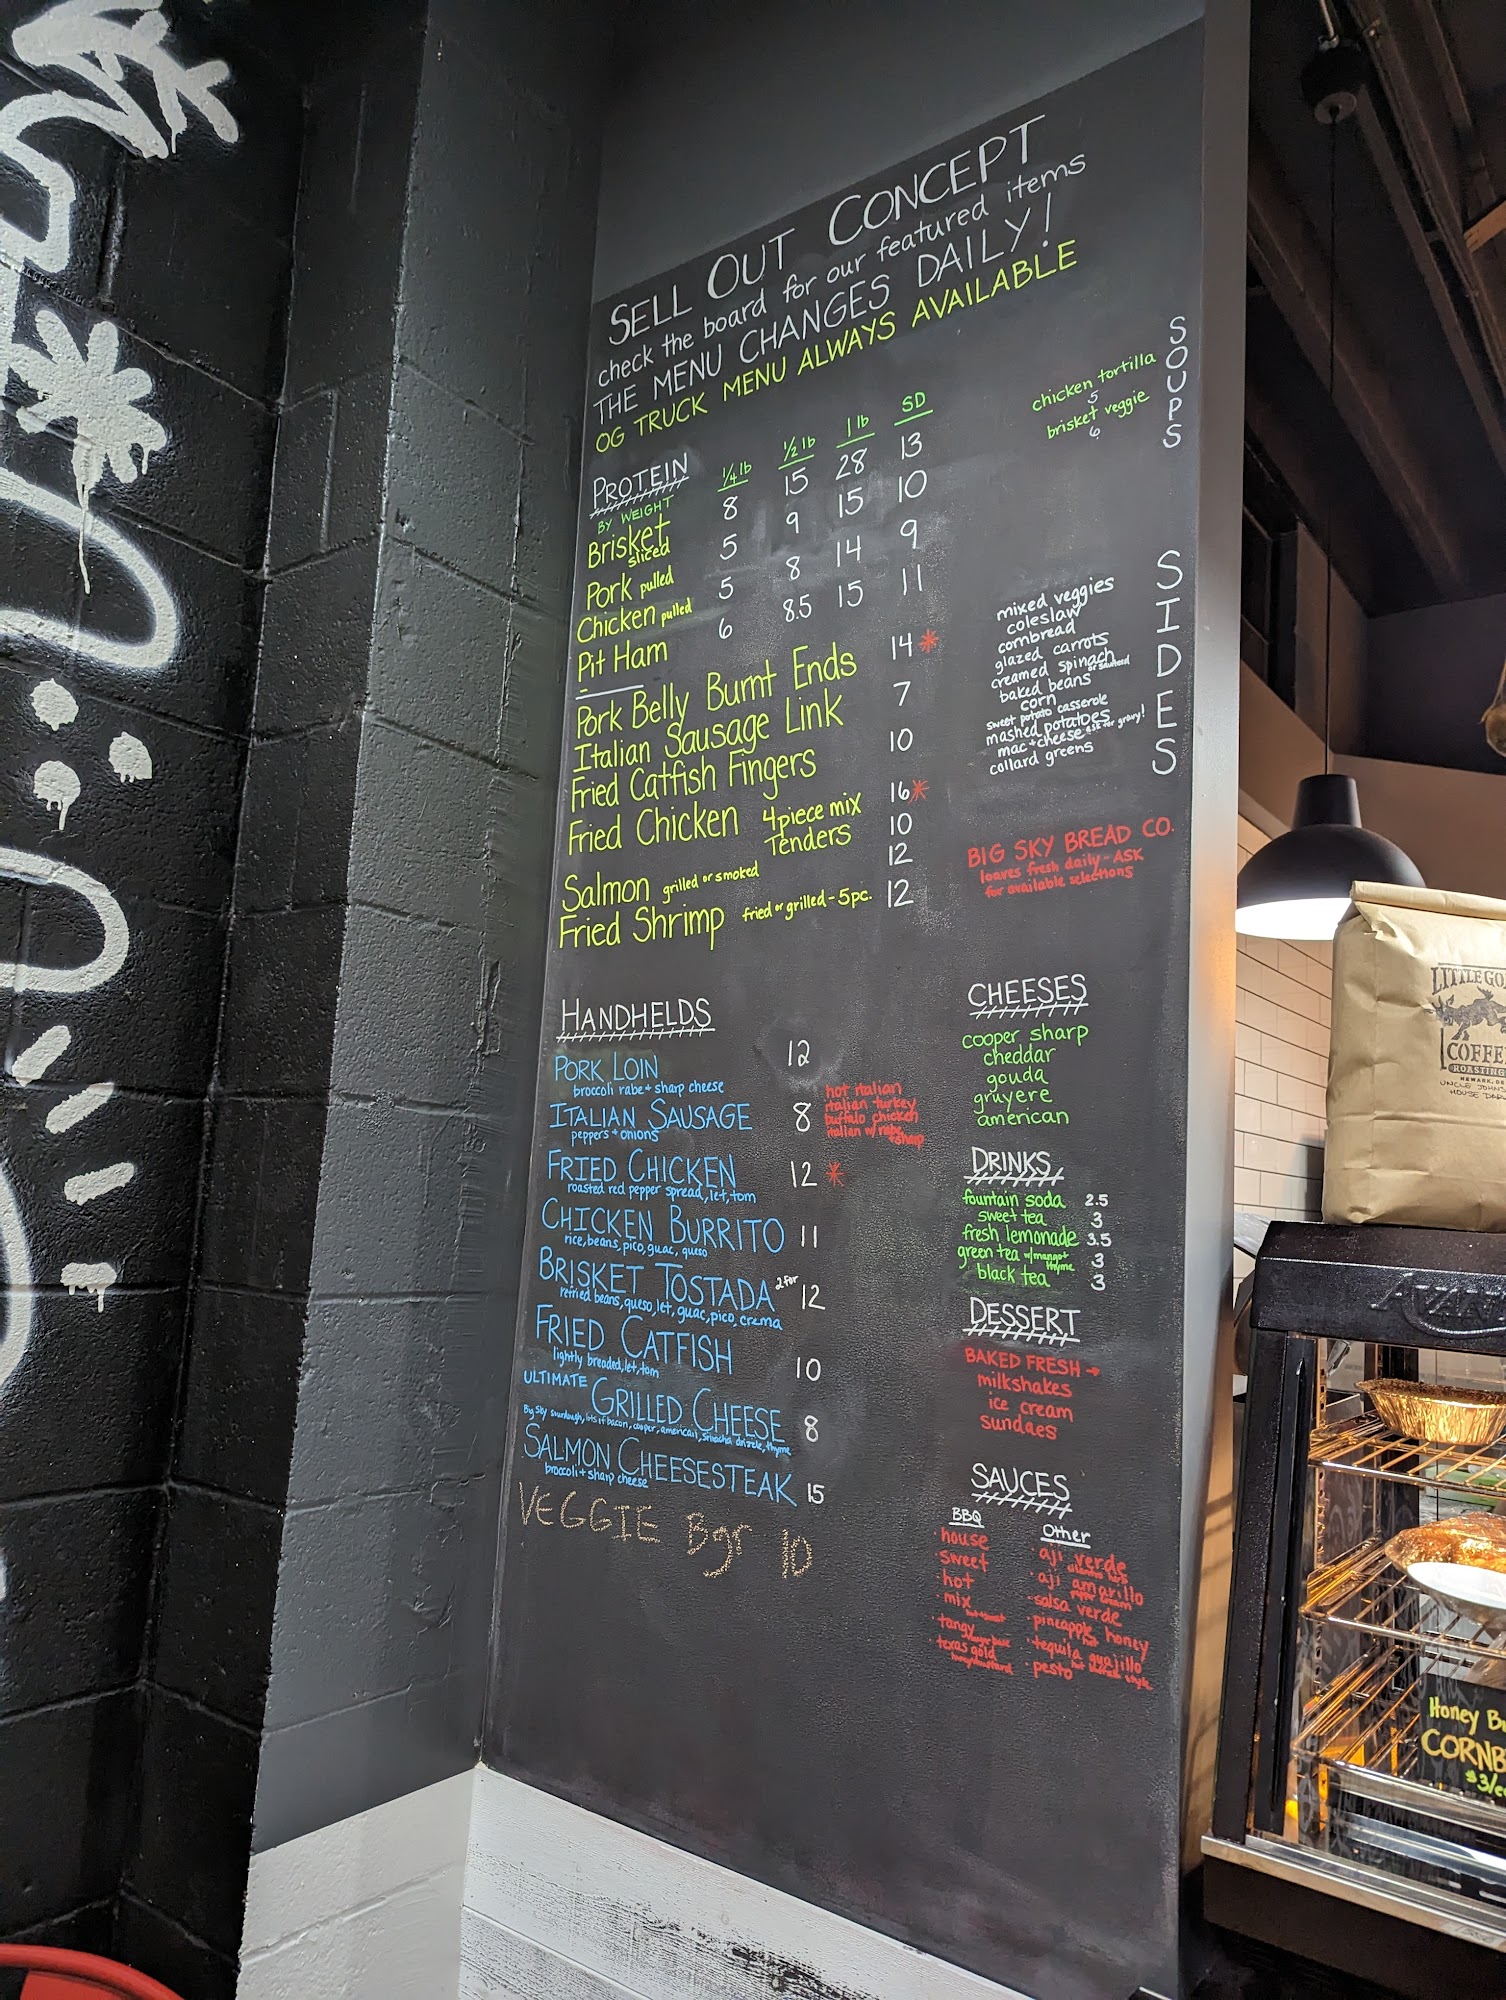 SELL OUT CONCEPT
check the board for our featured items
THE MENU CHANGES DAILY!
OG TRUCK MENU ALWAYS AVAILABLE
PROTEIN 1/4 lb 1/2 lb 1 lb SD
BY WEIGHT
Brisket sliced 8 15 28 13
Pork pulled 5 9 15 10
Chicken pulled 5 8 14 9
Pit Ham 6 8.5 15 11
Pork Belly Burnt Ends 14 *
Italian Sausage Link 7
Fried Catfish Fingers 10
Fried Chicken 4 piece mix 16 *
Tenders 10
Salmon grilled or smoked 12
Fried Shrimp fried or grilled - 5pc. 12
HANDHELDS
PORK LOIN 12
broccoli rabe + sharp cheese
ITALIAN SAUSAGE 8
peppers + onions
hot italian
italian turkey
buffalo chicken
italian w/ rabe
+ sharp
FRIED CHICKEN 12 *
roasted red pepper spread, let, tom
CHICKEN BURRITO 11
rice, beans, pico, guac, queso
BRISKET TOSTADA 2 for 12
refried beans, queso, let, guac, pico, crema
FRIED CATFISH 10
lightly breaded, let, tom
ULTIMATE GRILLED CHEESE 8
Big Sky sourdough, lots of bacon, cooper, american, sriracha drizzle, thyme
SALMON CHEESESTEAK 15
broccoli + sharp cheese
VEGGIE Bgr 10
SOUPS
chicken tortilla
5
brisket veggie
6
SIDES
mixed veggies
coleslaw
cornbread
glazed carrots
creamed spinach
baked beans
corn
sweet potato casserole
mashed potatoes ask for gravy!
mac + cheese
collard greens
BIG SKY BREAD CO.
loaves fresh daily - ASK
for available selections
CHEESES
cooper sharp
cheddar
gouda
gruyere
american
DRINKS
fountain soda 2.5
sweet tea 3
fresh lemonade 3.5
green tea w/mango + thyme 3
black tea 3
DESSERT
BAKED FRESH →
milkshakes
ice cream
sundaes
SAUCES
BBQ
house
sweet
hot
mix
hot + sweet
tangy
texas gold
honey mustard
Other
aji verde
aji amarillo
salsa verde
pineapple honey
tequila guajillo
pesto
COFFEE
ROASTING
NEWARK, DE
HOUSE
Honey